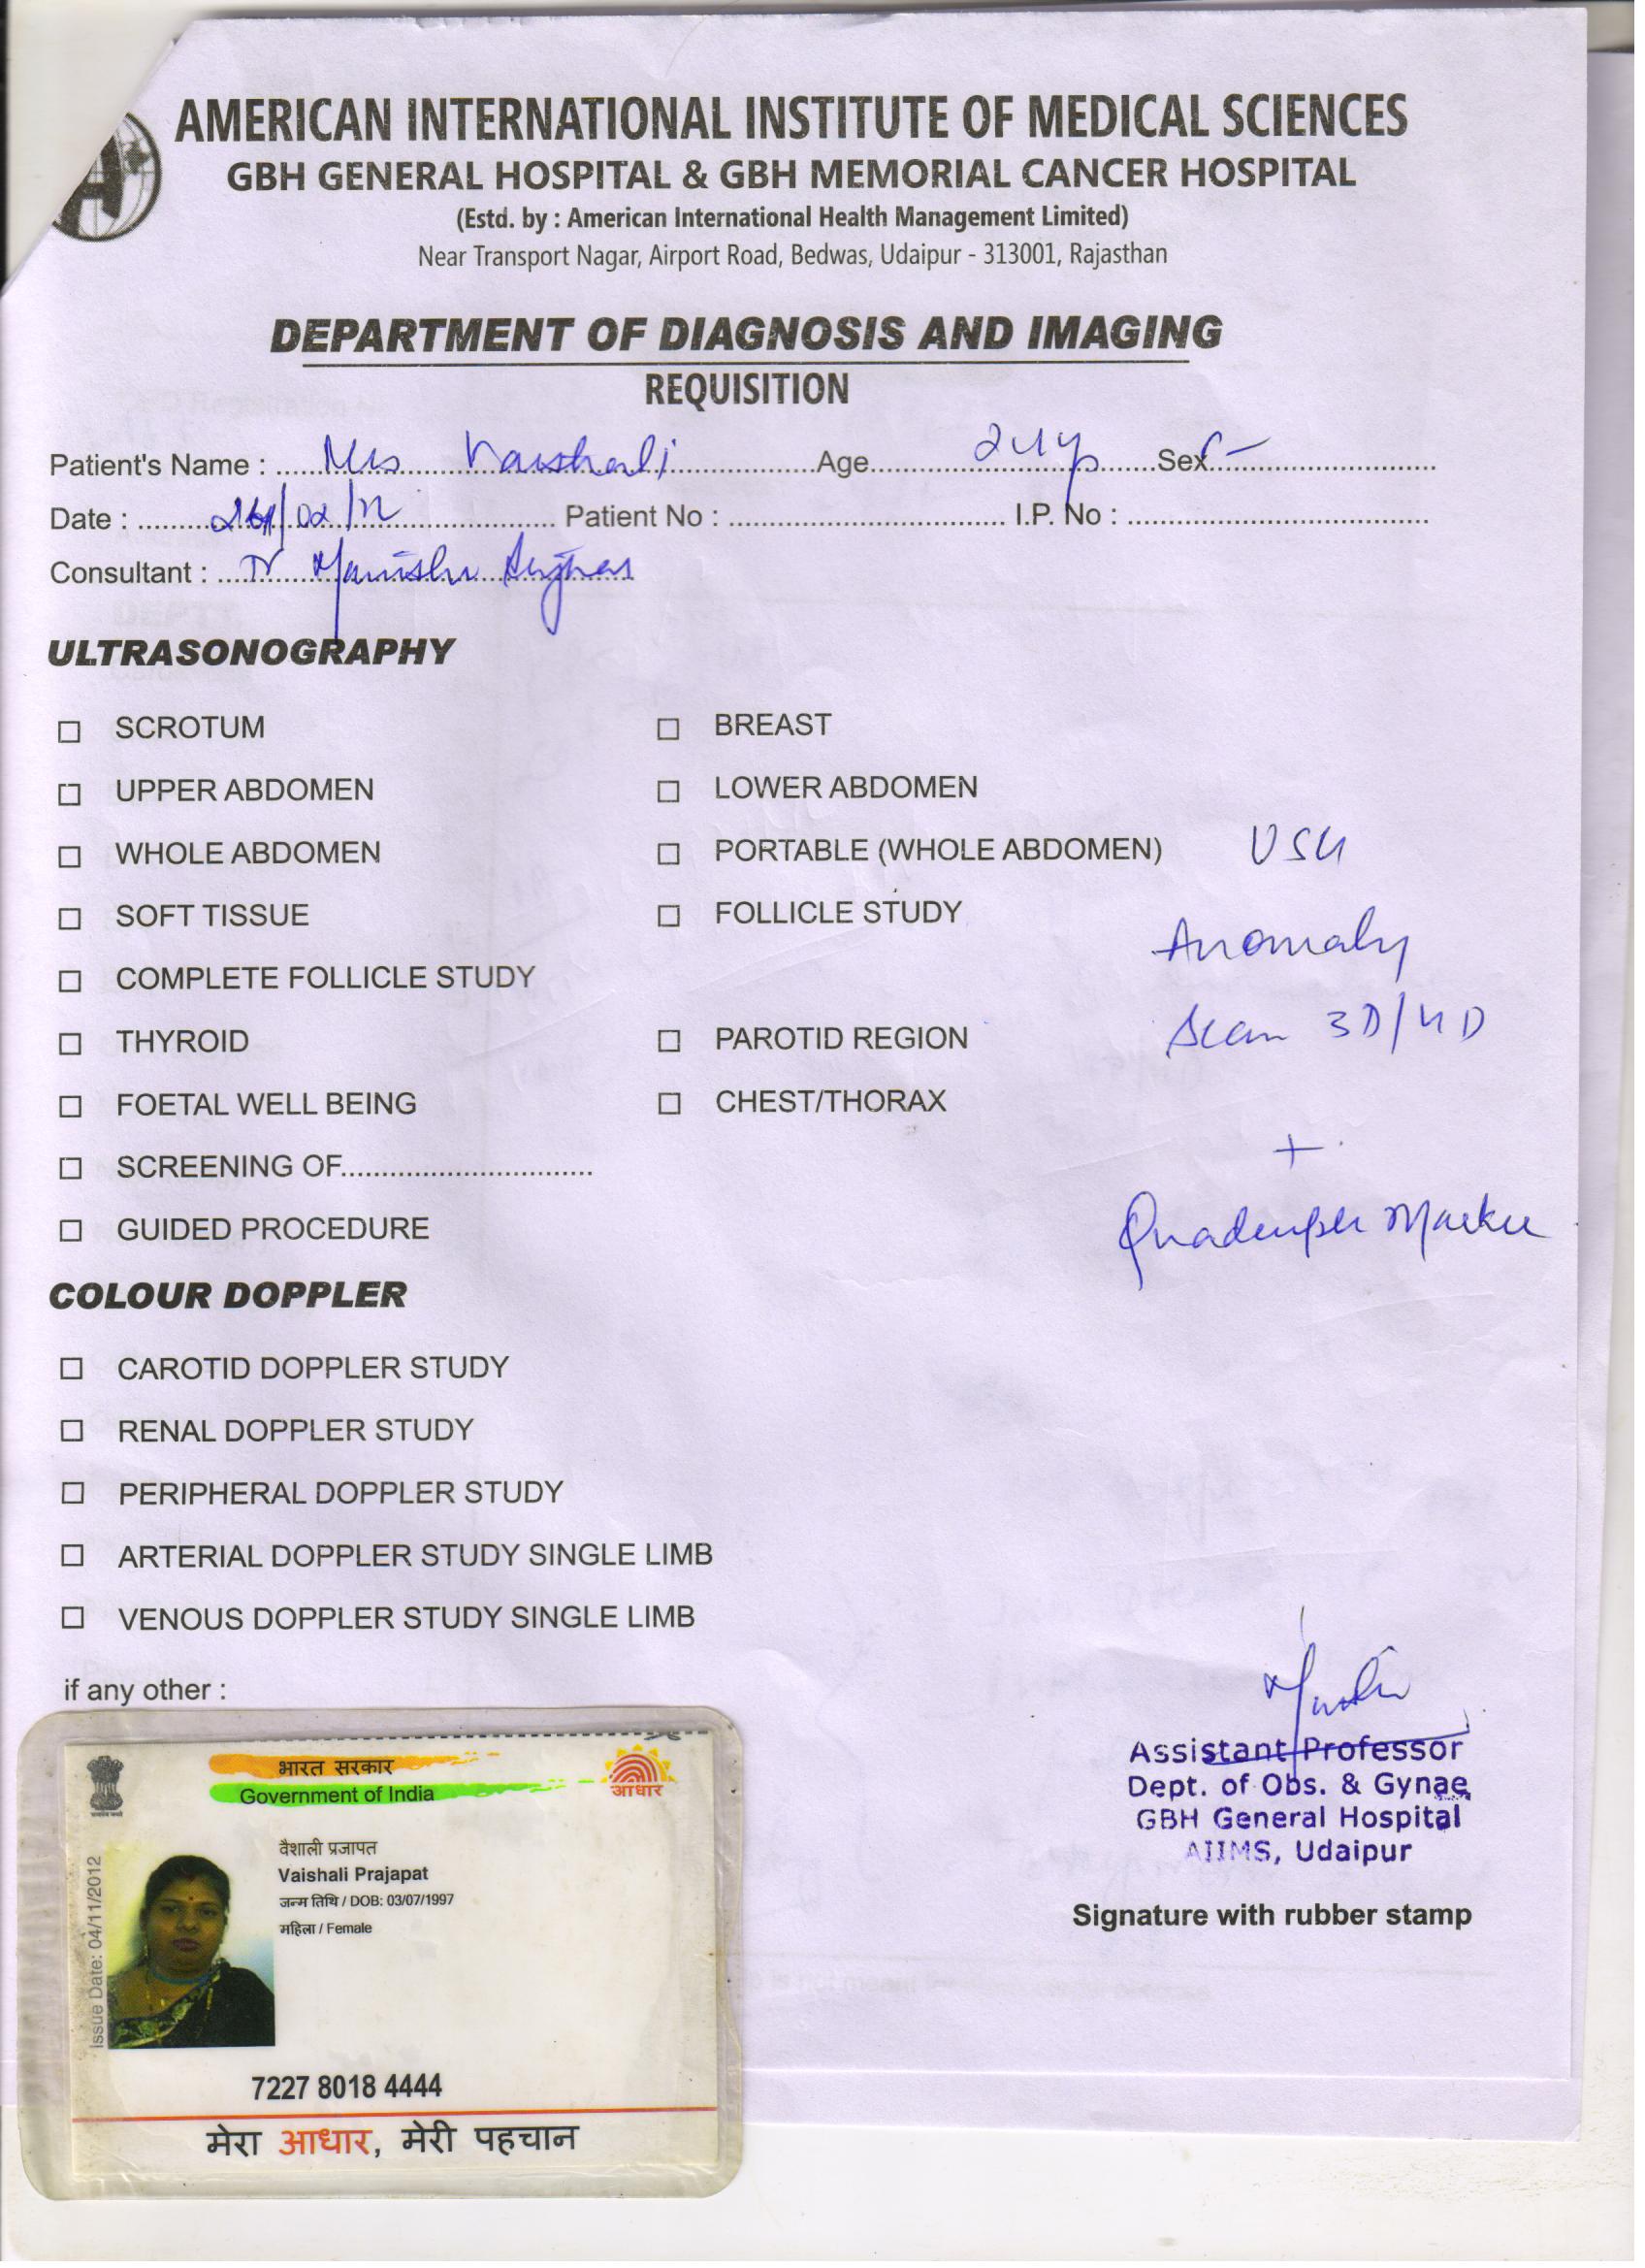 AMERICAN INTERNATIONAL INSTITUTE OF MEDICAL SCIENCES
GBH GENERAL HOSPITAL & GBH MEMORIAL CANCER HOSPITAL
(Estd. by : American International Health Management Limited)
Near Transport Nagar, Airport Road, Bedwas, Udaipur - 313001, Rajasthan
DEPARTMENT OF DIAGNOSIS AND IMAGING
REQUISITION
Patient's Name : Mrs Vaishali Age 24 Sex F
Date : /02/ Patient No : I.P. No :
Consultant : Dr
ULTRASONOGRAPHY
SCROTUM BREAST
UPPER ABDOMEN LOWER ABDOMEN
WHOLE ABDOMEN PORTABLE (WHOLE ABDOMEN) USG
SOFT TISSUE FOLLICLE STUDY Anomaly
COMPLETE FOLLICLE STUDY
THYROID PAROTID REGION Scan 3D/4D
FOETAL WELL BEING CHEST/THORAX
+
SCREENING OF
GUIDED PROCEDURE Marker
COLOUR DOPPLER
CAROTID DOPPLER STUDY
RENAL DOPPLER STUDY
PERIPHERAL DOPPLER STUDY
ARTERIAL DOPPLER STUDY SINGLE LIMB
VENOUS DOPPLER STUDY SINGLE LIMB
if any other :
Assistant Professor
Dept. of Obs. & Gynae
GBH General Hospital
AIIMS, Udaipur
Signature with rubber stamp
भारत सरकार
Government of India
आधार
वैशाली प्रजापत
Vaishali Prajapat
जन्म तिथि / DOB: 03/07/1997
महिला / Female
Issue Date: 04/11/2012
7227 8018 4444
मेरा आधार, मेरी पहचान